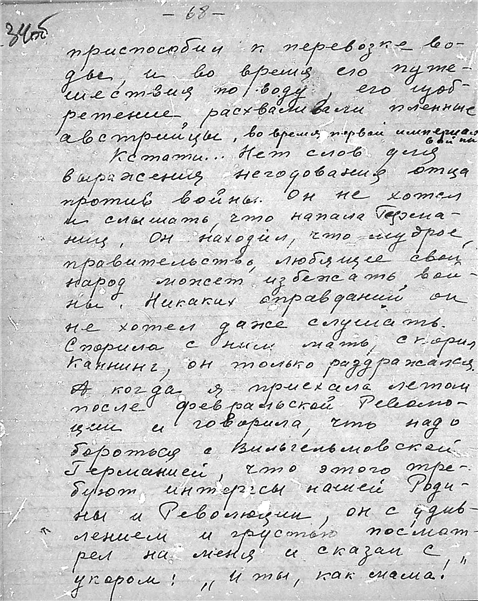 – 68 –
приспособил к перевозке во-
ды, и во время его путе-
шествия по воду, его изоб-
ретение расхваливали пленные
австрийцы, во время первой империал.
войны
Кстати... Нет слов для
выражения негодования отца
против войны. Он не хотел
и слышать, что напала Герма-
ния. Он находил, что мудрое,
правительство, любящее свой
народ может избежать вой-
ны. Никаких оправданий он
не хотел даже слушать.
Спорила с ним мать, спорил
Каннинг, он только раздражался.
А когда я приехала летом
после февральской Револю-
ции и говорила, что надо
бороться с Вильгельмовской
Германией, что этого тре-
буют интересы нашей Роди-
ны и Революции, он с удив-
лением и грустью посмот-
рел на меня и сказал с
укором: „И ты, как мама!"